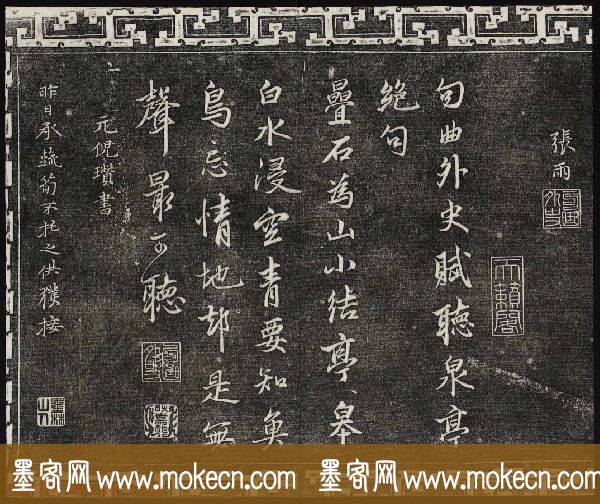 張雨
句曲外史賦聽泉亭
絶句
疊石為山小結亭亭皋
白水浸空青要知魚
鳥忘情地却是無
聲最可聽
元倪瓚書
昨日承蔬筍不托之供獲接
天籟閣
墨客网 www.mokecn.com 墨客网 www.mokecn.com